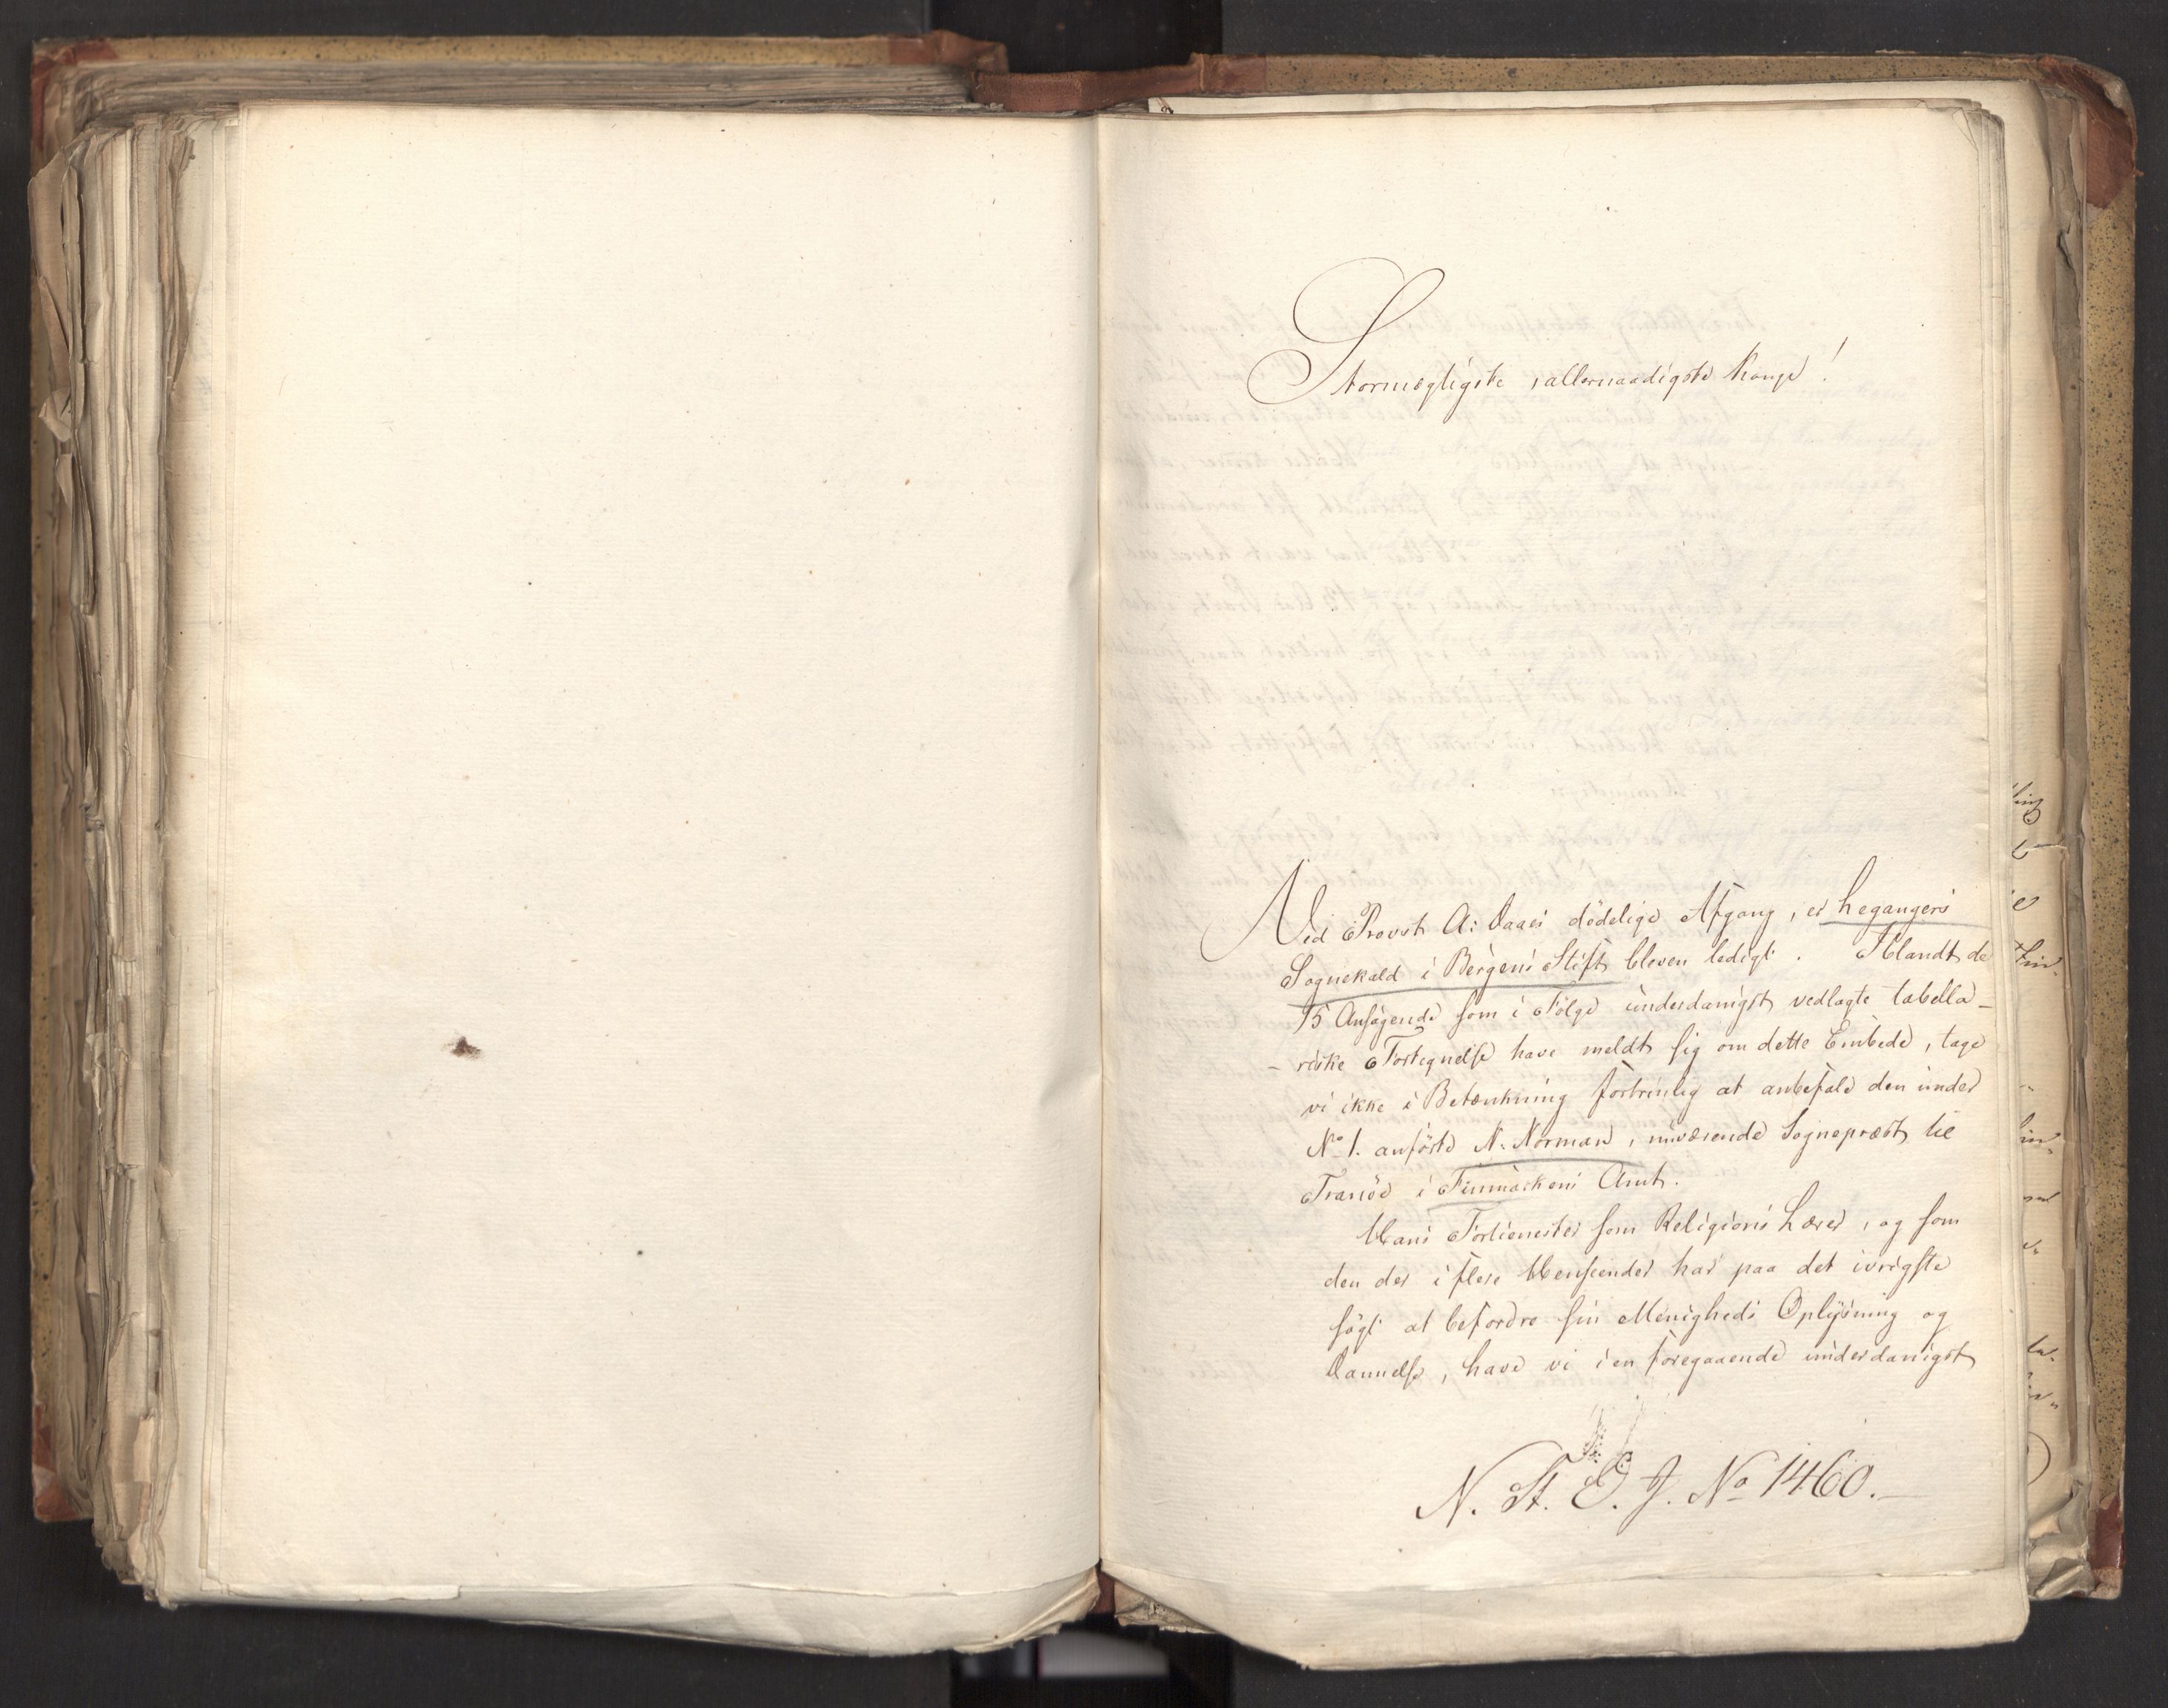 Stormægtigste, allernaadigste Konge!
Ved Provst A: Daaes dödelige Afgang, er Leganger's
Sognekald i Bergens Stift bleven ledigt. Iblandt de
15 Ansögende som i Fölge underdanigst vedlagte tabella-
-riske Fortegnelse have meldt sig om dette Embede, tage
vi ikke i Betænkning fortrinlig at anbefale den under
No 1. anförte N. Norman, nuværende Sognepræst til
Tranöe i Finmarkens Amt.
Hans Fortienester som Religions Lærer, og som
den der i flere Henseender har paa det ivrigste
sögt at befordre sin Menigheds Oplysning og
Dannelse, have vi i en foregaaende underdanigst
N. St. E. J. No 1460.-